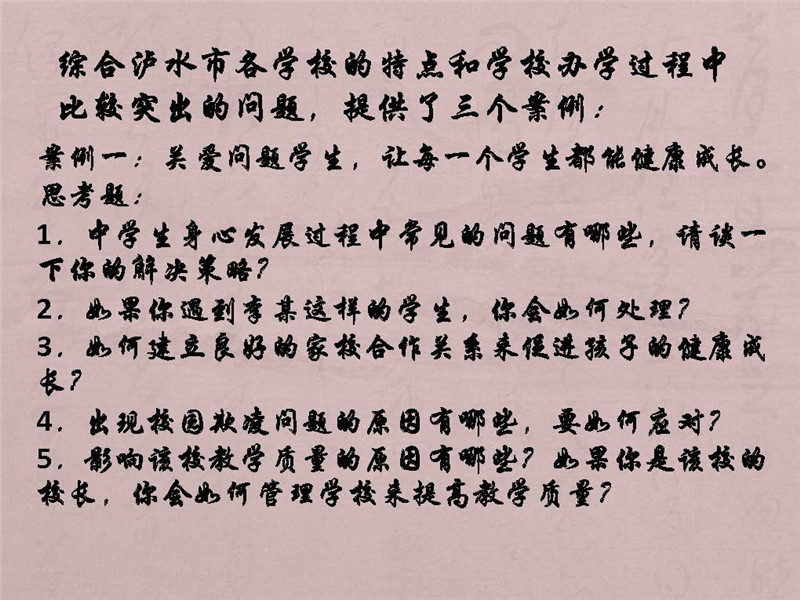 综合泸水市各学校的特点和学校办学过程中
比较突出的问题，提供了三个案例：
案例一：关爱问题学生，让每一个学生都能健康成长。
思考题：
1．中学生身心发展过程中常见的问题有哪些，请谈一
下你的解决策略？
2．如果你遇到李某这样的学生，你会如何处理？
3．如何建立良好的家校合作关系来促进孩子的健康成
长？
4．出现校园欺凌问题的原因有哪些，要如何应对？
5．影响该校教学质量的原因有哪些？如果你是该校的
校长，你会如何管理学校来提高教学质量？